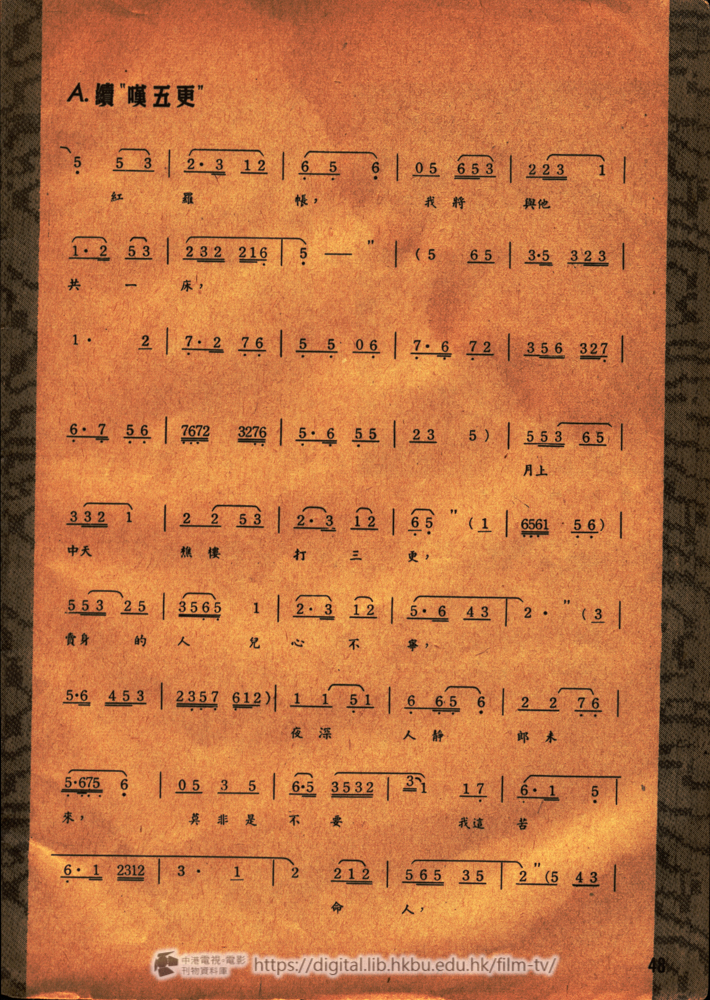 A. 續"嘆五更"
5 5 3 | 2· 3 1 2 | 6 5 6 | 0 5 6 5 3 | 2 2 3 1 |
紅 羅 帳， 我 將 與他
1· 2 5 3 | 2 3 2 2 1 6 | 5 — " | ( 5 6 5 | 3·5 3 2 3 |
共 一 床，
1· 2 | 7· 2 7 6 | 5 5 0 6 | 7· 6 7 2 | 3 5 6 3 2 7 |
6· 7 5 6 | 7672 3276 | 5· 6 5 5 | 2 3 5 ) | 5 5 3 6 5 |
月上
3 3 2 1 | 2 2 5 3 | 2· 3 1 2 | 6 5 " ( 1 | 6561 5 6 ) |
中天 樵 樓 打 三 更，
5 5 3 2 5 | 3 5 6 5 1 | 2· 3 1 2 | 5· 6 4 3 | 2 · " ( 3 |
賣身 的 人 兒 心 不 寧，
5·6 4 5 3 | 2 3 5 7 6 1 2 ) | 1 1 5 1 | 6 6 5 6 | 2 2 7 6 |
夜 深 人 靜 郎 未
5·675 6 | 0 5 3 5 | 6·5 3 5 3 2 | 3 1 1 7 | 6· 1 5 |
來， 莫 非 是 不 要 我這 苦
6· 1 2312 | 3 · 1 | 2 2 1 2 | 5 6 5 3 5 | 2 " (5 4 3 |
命 人，
中港電視·電影
刊物資料庫
https://digital.lib.hkbu.edu.hk/film-tv/
48